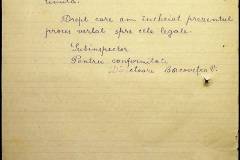 tenută.
Drept care am încheiat prezentul
proces verbal spre cele legale.
Subinspector
Pentru conformitate